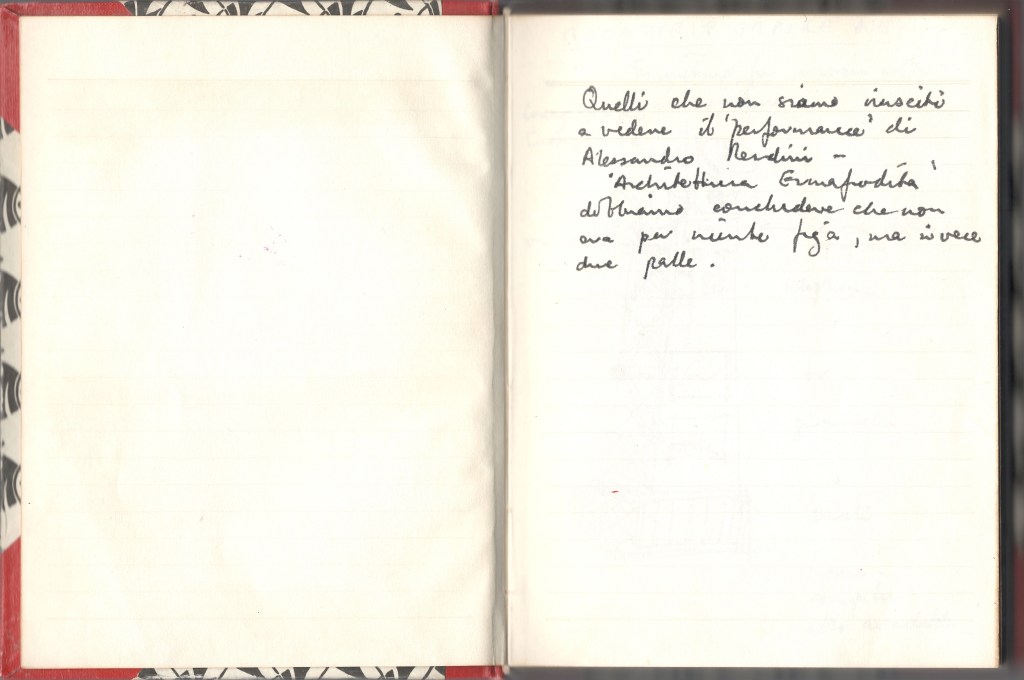 Quelli che non siamo riusciti
a vedere il 'performance' di
Alessandro Mendini -
'Architettura Ermafrodita'
dobbiamo concludere che non
era per niente figa, ma invece
due palle.